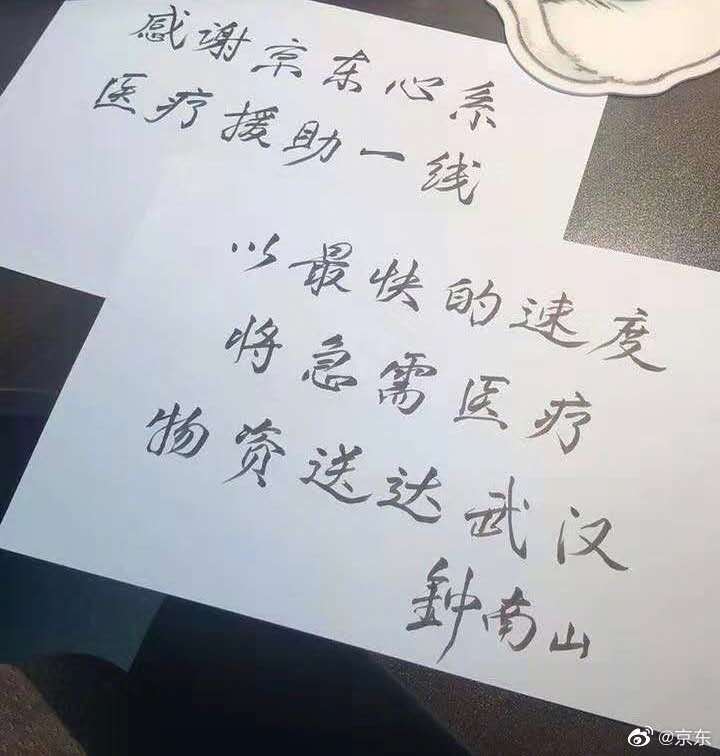 感谢京东心系
医疗援助一线
以最快的速度
将急需医疗
物资送达武汉
鍾南山
@京东